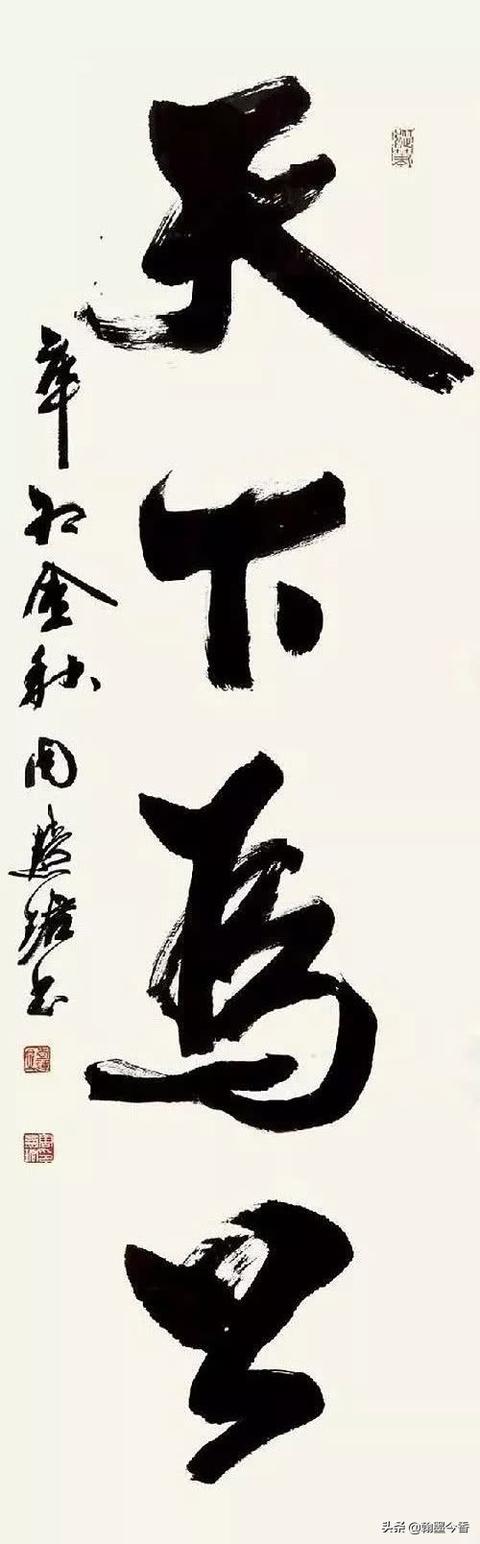 天下為公
辛卯金秋周慧珺书
头条 @翰墨今香